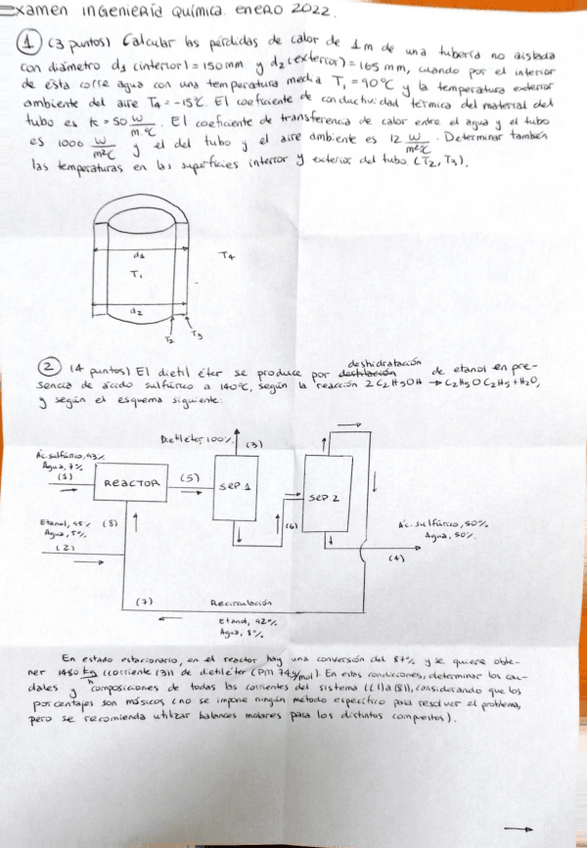 Examen ingeniería química. enero 2022.
1 (3 puntos) Calcular las pérdidas de calor de 1m de una tubería no aislada
con diámetro d1 (interior) = 150 mm y d2 (exterior) = 165 mm, cuando por el interior
de ésta corre agua con una temperatura media T1 = 90°C y la temperatura exterior
ambiente del aire T4 = -15°C. El coeficiente de conductividad térmica del material del
tubo es k = 50 W/m.°C. El coeficiente de transferencia de calor entre el agua y el tubo
es 1000 W/m²°C y el del tubo y el aire ambiente es 12 W/m²°C. Determinar también
las temperaturas en las superficies interior y exterior del tubo (T2, T3).
d1
T1
T4
d2
T2
T3
2 (4 puntos) El dietil éter se produce por deshidratación de etanol en pre-
sencia de ácido sulfúrico a 140°C, según la reacción 2 C2H5OH → C2H5OC2H5 + H2O,
y según el esquema siguiente:
Dietiléter, 100%
(3)
Ác. sulfúrico, 93%
Agua, 7%
(1)
REACTOR
(5)
SEP 1
SEP 2
(6)
Etanol, 95%
Agua, 5%
(2)
(8)
Ác. sulfúrico, 50%
Agua, 50%
(4)
(7)
Recirculación
Etanol, 92%
Agua, 8%
En estado estacionario, en el reactor hay una conversión del 87% y se quiere obte-
ner 1480 kg/h (corriente (3)) de dietiléter (PM 74 g/mol). En estas condiciones, determinar los cau-
dales y composiciones de todas las corrientes del sistema ((1) a (8)), considerando que los
porcentajes son másicos (no se impone ningún método específico para resolver el problema,
pero se recomienda utilizar balances molares para los distintos compuestos).